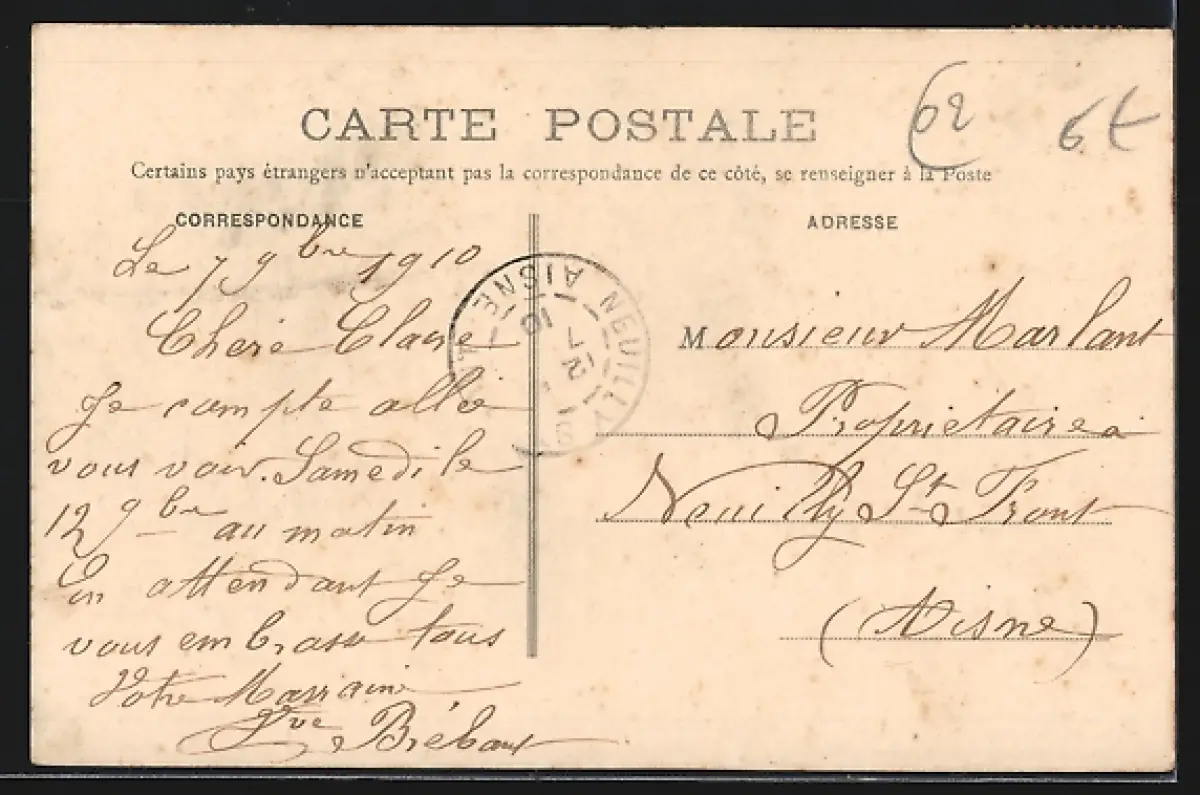 62
6 t
CARTE POSTALE
Certains pays étrangers n'acceptant pas la correspondance de ce côté, se renseigner à la Poste
CORRESPONDANCE
Le 7 9bre 1910
Chère Claire
Je compte aller
vous voir. Samedi le
12 9bre au matin
En attendant Je
vous embrasse tous
Votre Marraine
Vve Brébant
NEUILLY AISNE
7
10
ADRESSE
Monsieur Marlant
Propriétaire a
Neuilly St Front
(Aisne)